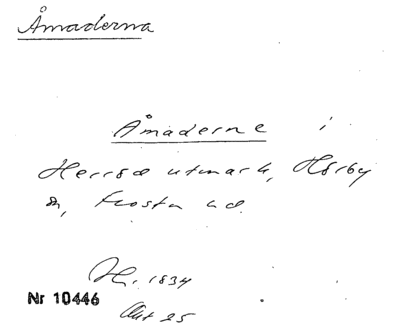 Åmaderna
Åmaderne i
Herrsd utmark, Hörby
sn, Frosta hd.
H. 1834
Nr 10446
Akt 25